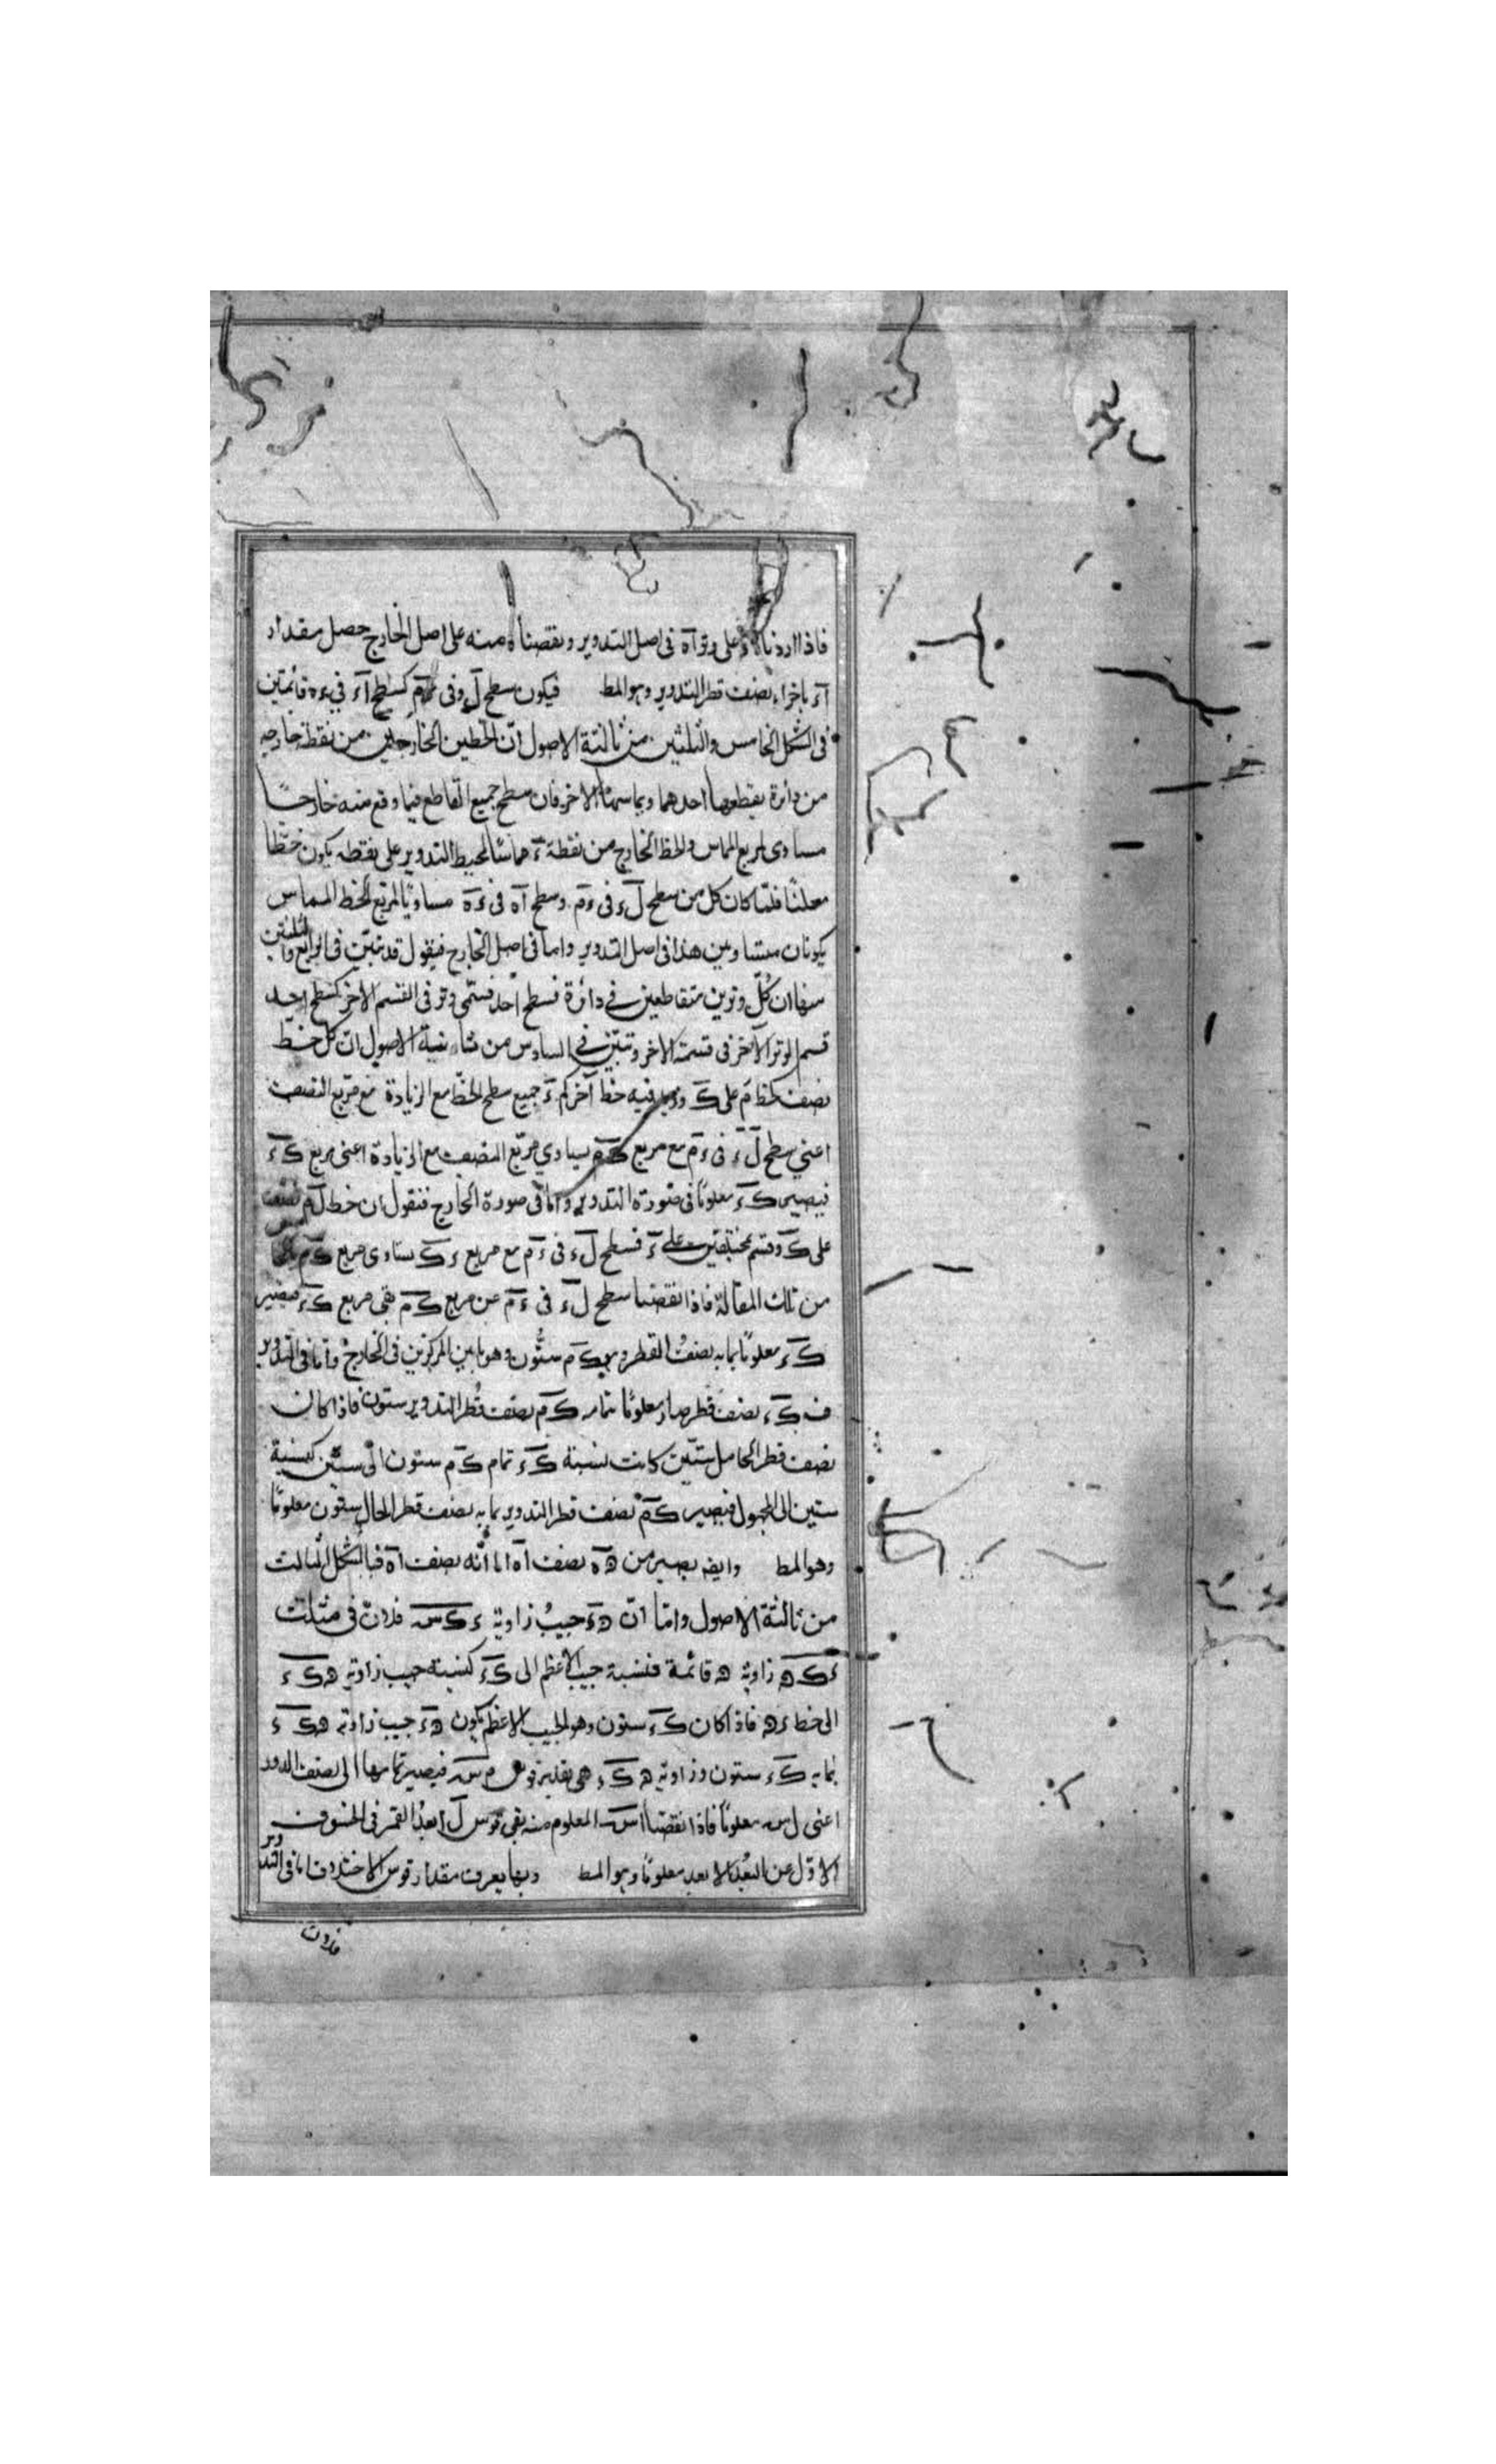 فاذا اردنا ٥ء على وتر آه فى اصل التدوير ونقصنا ه منه على اصل الخارج حصل مقدار
آء باجزاء نصف قطر التدوير وهو المط فيكون سطح لء فى ءم كسطح آء فى ءه قائمتين
فى الشكل الخامس والثلثين من ثالثة الاصول ان الخطين الخارجين من نقطة خارجه
من دائرة يقطعها احدهما ويماسها الاخر فان سطح جميع القاطع فيما وقع منه خارجًا
مساوى لمربع المماس والخط الخارج من نقطة ء مماسًا لمحيط التدوير على نقطه يكون خطّا
معلنًا فلمّا كان كل من سطح لء فى ءم وسطح آه فى ءه مساويًا لمربع الخط المماس
يكونان متساويين هذا فى اصل التدوير واما فى اصل الخارج فيقول قد تبيّن فى الرابع والثلثين
منها ان كلّ وترين متقاطعين فى دائرة فسطح احد قسمى وتر فى القسم الاخر كسطح احد
قسم الوتر الآخر فى قسمته الاخر وتبيّن فى السادس من ثانية الاصول ان كل خط
نصف كخط لم على ك وزيد فيه خط آخر كم ء جميع سطح الخط مع الزيادة مع مربع النصف
اعنى سطح لء فى ءم مع مربع كم يساوي مربع النصف مع الزيادة اعنى مربع كء
فيصير كء معلومًا فى صورة التدوير واما فى صورة الخارج فنقول ان خط لم نصف
على ك وقسم بمختلفين على ء فسطح لء فى ءم مع مربع ءك يساوى مربع كم
من تلك المقالة فاذا نقصنا سطح لء فى ءم عن مربع كم بقى مربع كء فيصير
كء معلومًا بما به نصف القطر وهو كم ستون وهو ما بين المركزين فى الخارج واما فى التدوير
فـ كء نصف قطر صار معلومًا بما به كم نصف قطر التدوير ستون فاذا كان
نصف قطر الحامل ستين كانت نسبة كء بما به كم ستون الى ستين كنسبة
ستين الى المجهول فيصير كم نصف قطر التدوير بما به نصف قطر الحامل ستون معلومًا
وهو المط وايضا يصير من ه‍ه نصف آه الما انّه نصف آه فبالشكل الثالث
من ثالثة الاصول واما ان ه‍ء جيبُ زاوية ءكس فلان فى مثلث
ءكه زاوية ه قائمة فنسبة جيب الاعظم الى كء كنسبة جيب زاوية هكء
الى خط ءه فاذا كان كء ستون وهو الجيب الاعظم يكون هء جيب زاوية هكء
بما به كء ستون وزاوية هكء هى بقدر قوس م س فيصير تمامها الى نصف الدور
اعنى ل س معلومًا فاذا نقصنا اس المعلوم منه بقى قوس ل ا بعدُ القمر فى الخسوف
الاوّل عن البُعد الابعد معلومًا وهو المط وبها يعرف مقدار قوس الاختلاف اما فى التدوير
فلان